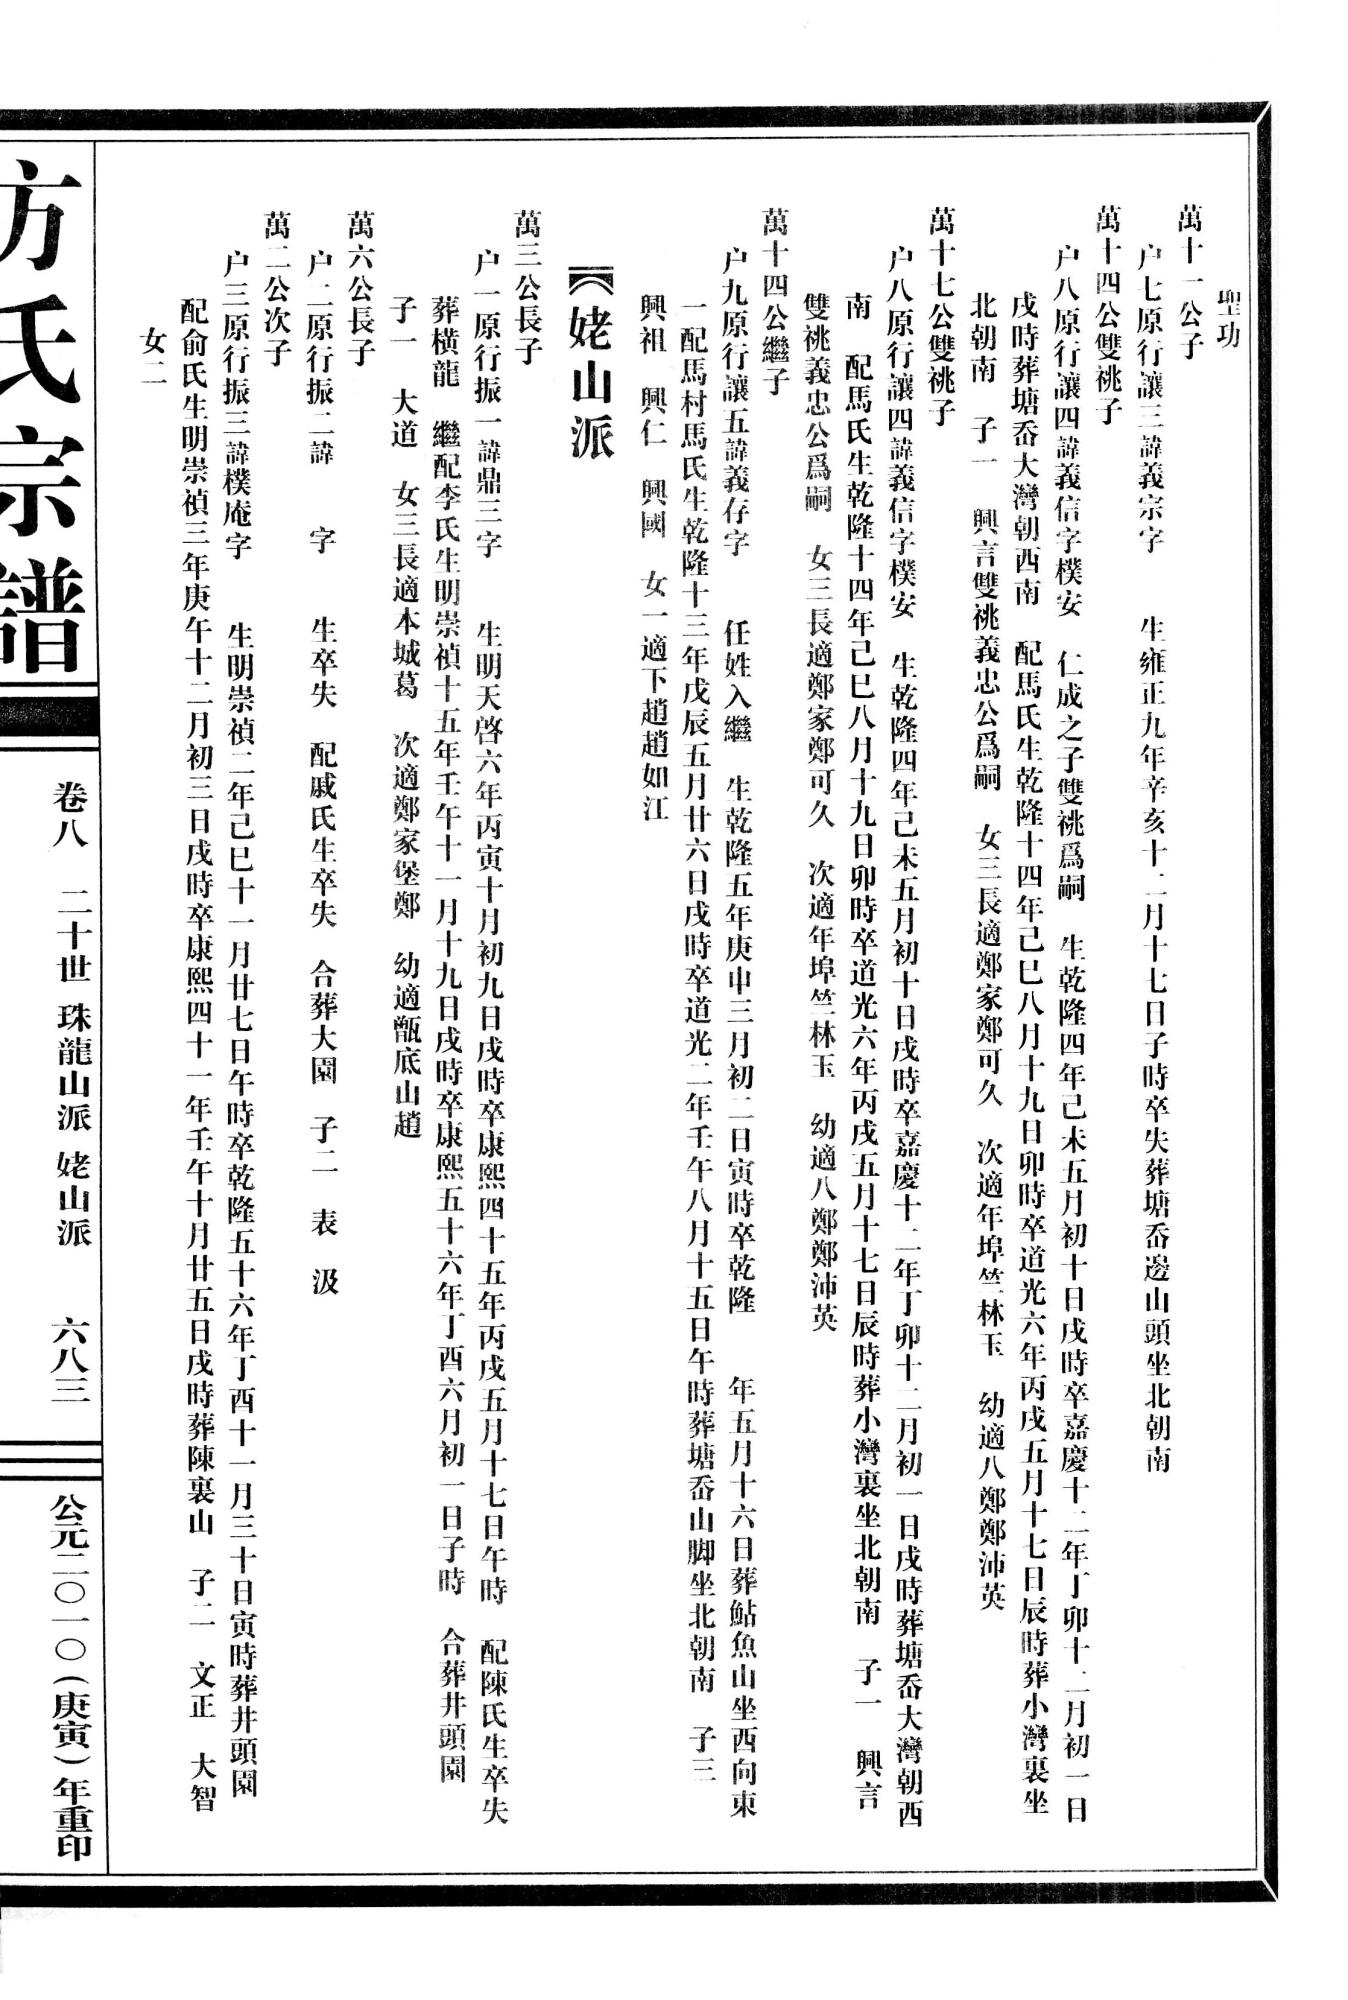 聖功
萬十一公子
户七原行讓三諱義宗字　生雍正九年辛亥十二月十七日子時卒失葬塘岙邊山頭坐北朝南
萬十四公雙祧子
户八原行讓四諱義信字樸安　仁成之子雙祧爲嗣　生乾隆四年己未五月初十日戌時卒嘉慶十二年丁卯十二月初一日
戌時葬塘岙大灣朝西南　配馬氏生乾隆十四年己巳八月十九日卯時卒道光六年丙戌五月十七日辰時葬小灣裏坐
北朝南　子一　興言雙祧義忠公爲嗣　女三長適鄭家鄭可久　次適年埠竺林玉　幼適八鄭鄭沛英
萬十七公雙祧子
户八原行讓四諱義信字樸安　生乾隆四年己未五月初十日戌時卒嘉慶十二年丁卯十二月初一日戌時葬塘岙大灣朝西
南　配馬氏生乾隆十四年己巳八月十九日卯時卒道光六年丙戌五月十七日辰時葬小灣裏坐北朝南　子一　興言
雙祧義忠公爲嗣　女三長適鄭家鄭可久　次適年埠竺林玉　幼適八鄭鄭沛英
萬十四公繼子
户九原行讓五諱義存字　任姓入繼　生乾隆五年庚申三月初二日寅時卒乾隆　年五月十六日葬鮎魚山坐西向東
一配馬村馬氏生乾隆十三年戊辰五月廿六日戌時卒道光二年壬午八月十五日午時葬塘岙山脚坐北朝南　子三
興祖　興仁　興國　女一適下趙趙如江
姥山派
萬三公長子
户一原行振一諱鼎三字　生明天啓六年丙寅十月初九日戌時卒康熙四十五年丙戌五月十七日午時　配陳氏生卒失
葬橫龍　繼配李氏生明崇禎十五年壬午十一月十九日戌時卒康熙五十六年丁酉六月初一日子時　合葬井頭園
子一　大道　女三長適本城葛　次適鄭家堡鄭　幼適甑底山趙
萬六公長子
户二原行振二諱　字　生卒失　配戚氏生卒失　合葬大園　子二　表　汲
萬二公次子
户三原行振三諱樸庵字　生明崇禎二年己巳十一月廿七日午時卒乾隆五十六年丁酉十一月三十日寅時葬井頭園
配俞氏生明崇禎三年庚午十二月初三日戌時卒康熙四十一年壬午十月廿五日戌時葬陳裏山　子二　文正　大智
女二
方氏宗譜
卷八　二十世　珠龍山派　姥山派　六八三
公元二〇一〇（庚寅）年重印